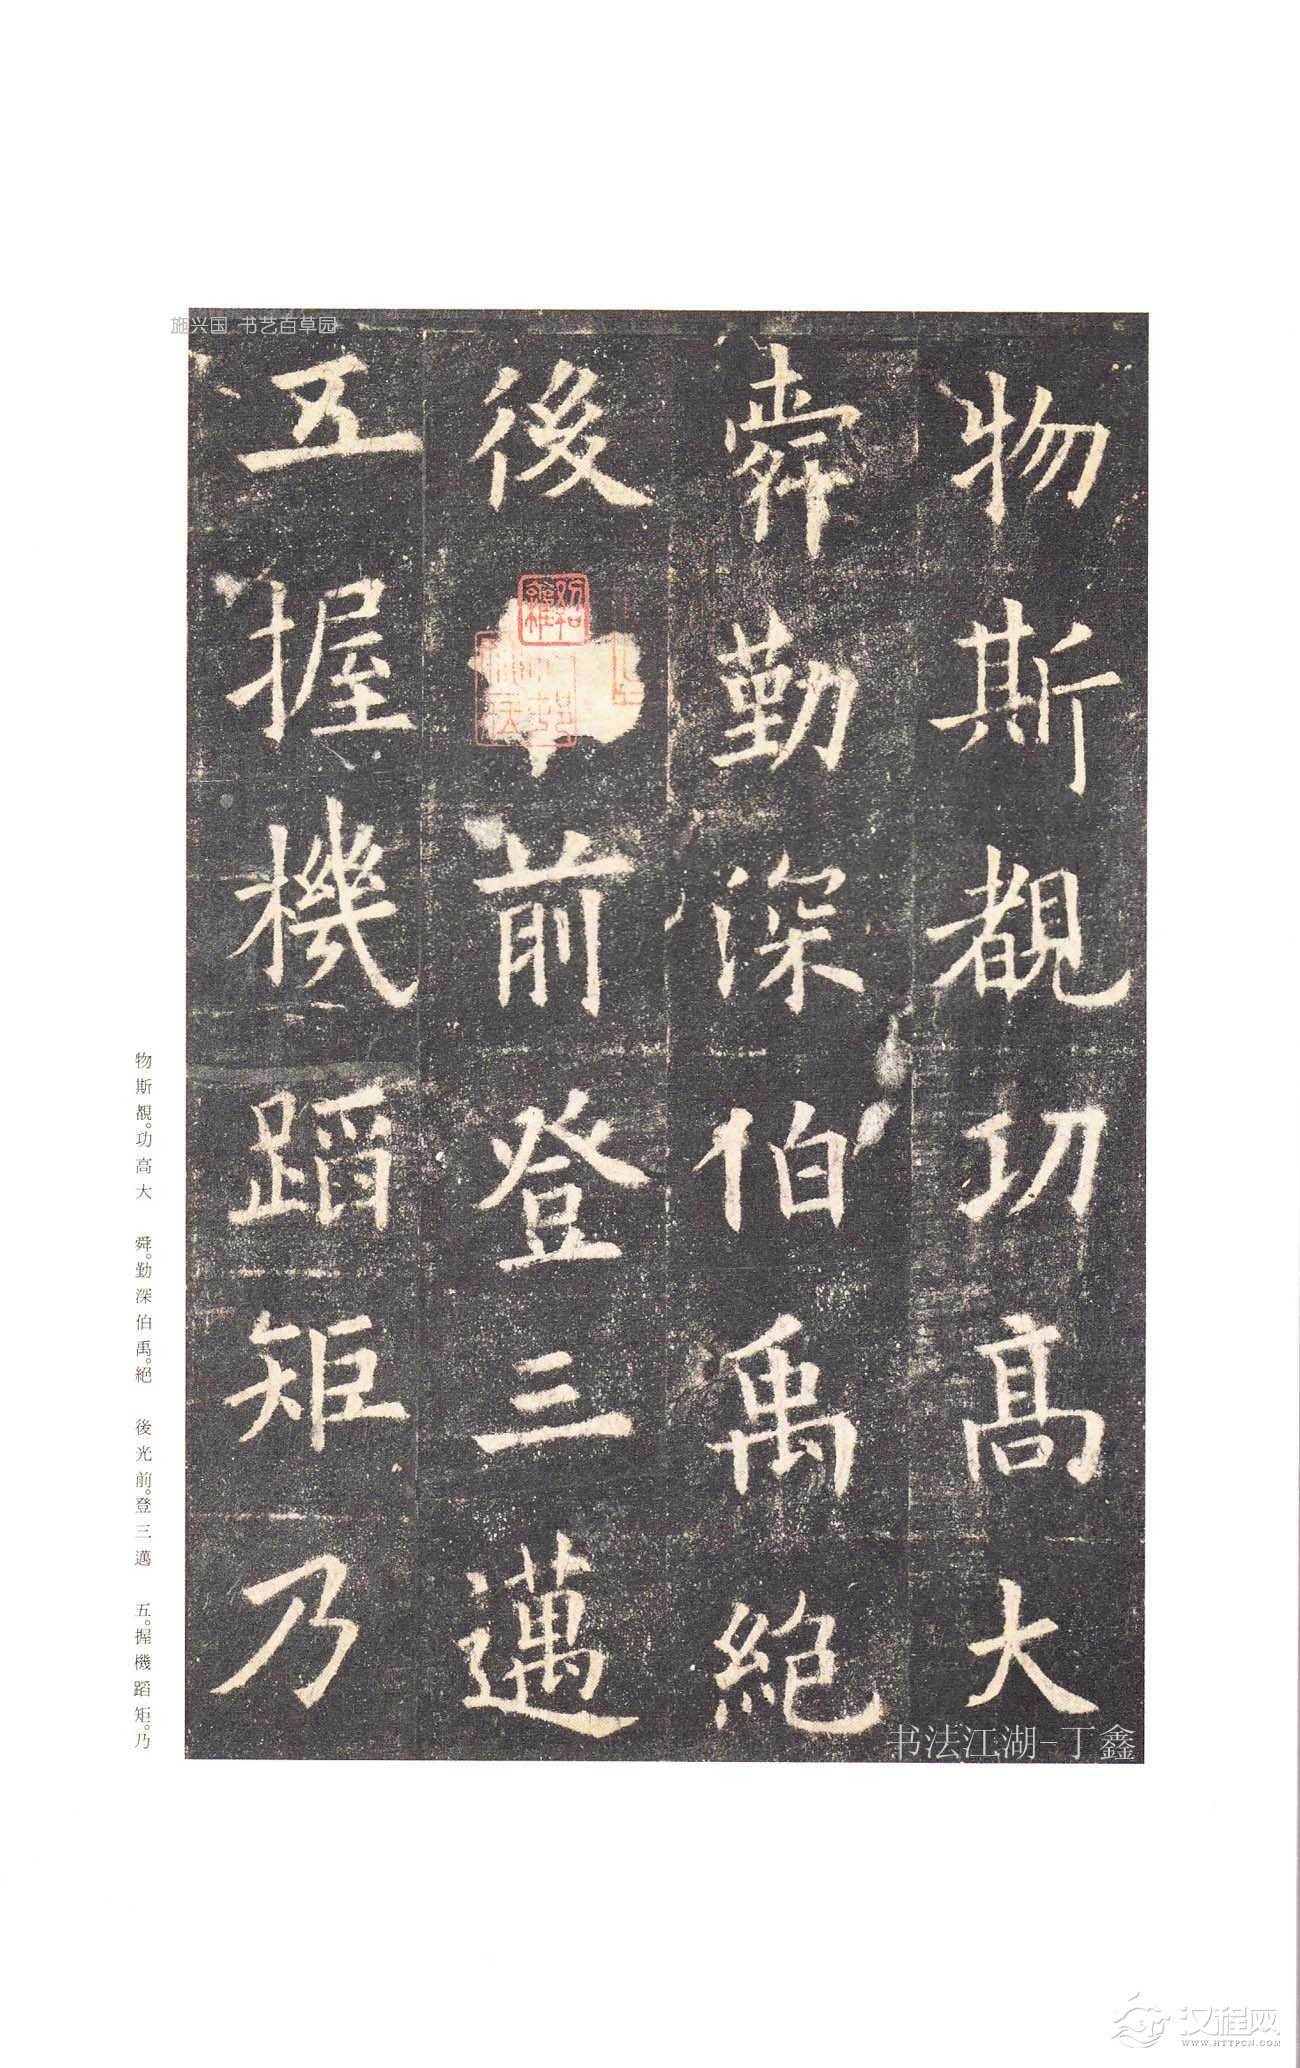 施兴国 书艺百草园
物斯覩功高大
舜勤深伯禹絶
後前登三邁
五握機蹈矩乃
物斯覩。功高大 舜。勤深伯禹。絕 後光前。登三邁 五。握機蹈矩。乃
书法江湖-丁鑫
汉程网
WWW.HTTPCN.COM